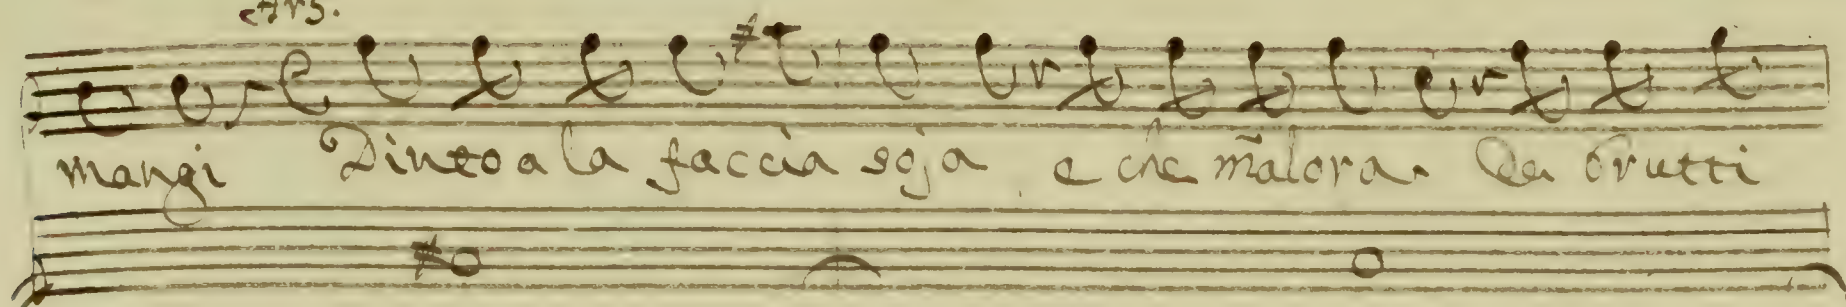 Ars.
mangi Dinto a la faccia soja e che m̃alora. De brutti